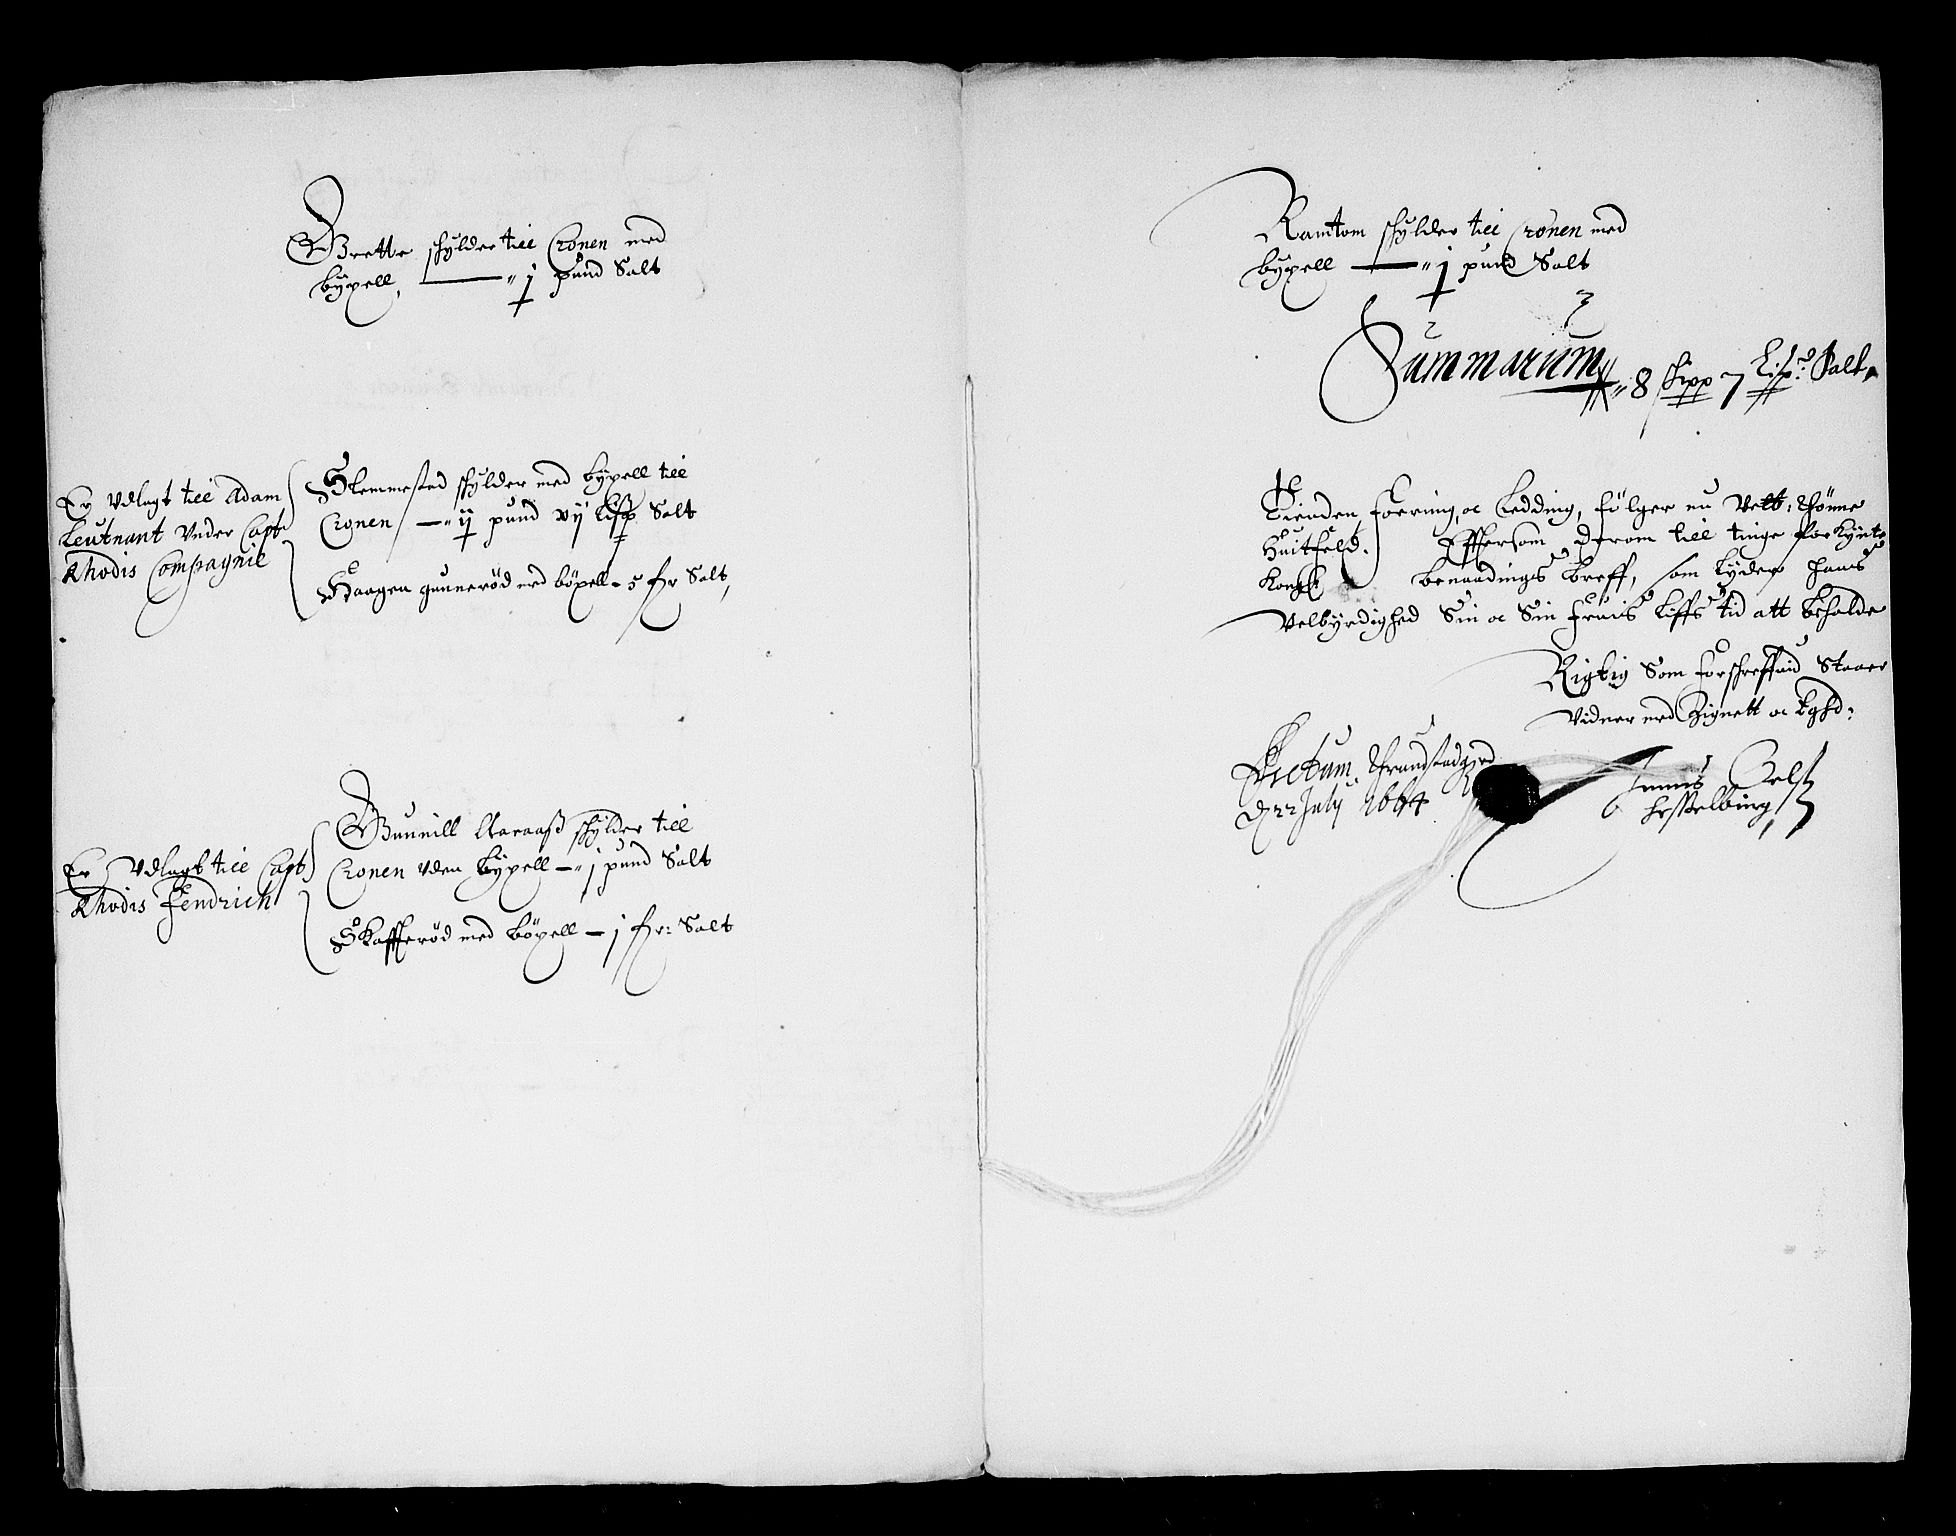 Grette skylder till Cronen med
bÿxell, — 1 pund Salt
Er Vdlagt till Adam
Leutnant Vnder Capt
Rhodis Compagnie
Slemmestad skylder med bÿxell till
Cronen — ij pund vij Lisp Salt
Haagen gunnerød med böxell - 5 fr Salt,
Er Vdlagt till Capt
Rhodis Fendrich
Gunnill Aaraaß skÿlder till
Cronen vden bÿxell — j pund Salt
Skafferød med böxell — j fr: Salt
Ramton skylder till Cronen med
bÿxell — 1 pund Salt
Summarum 8 skipp 7 Lisp: Salt
Tienden, Foering, oc Ledding, følger nu Velb: Tønne
Huitfeld. Effersom derom till tinge forkÿnte
Kongl: benaadings breff, som lÿder hans
Velbÿrdighed Sin oc Sin Fruis Liffs tid att beholde
Rigtig Som forschreffuid Staaer
Vidner med Zignett oc Eghd:
Actum
d 22 July 1664
Oels
Hesselbierg